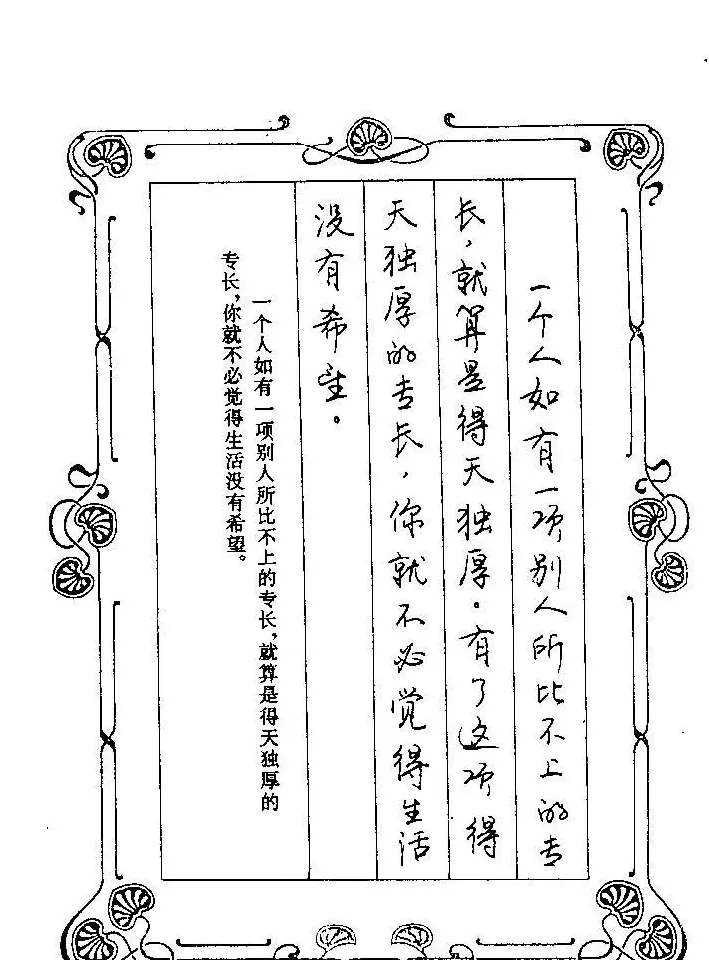 一个人如有一项别人所比不上的专
长，就算是得天独厚。有了这项得
天独厚的专长，你就不必觉得生活
没有希望。
一个人如有一项别人所比不上的专长，就算是得天独厚的
专长，你就不必觉得生活没有希望。